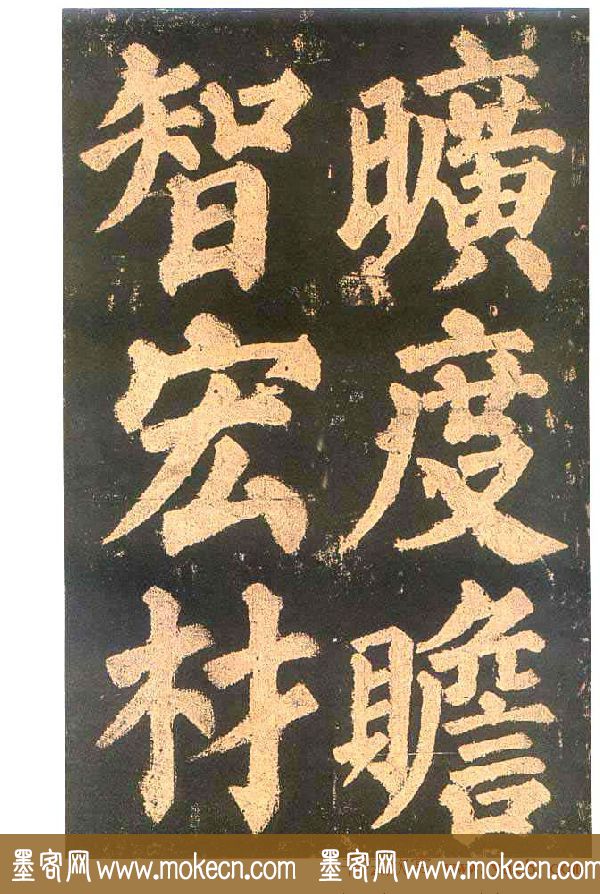 曠度贍
智宏材
墨客网 www.mokecn.com 墨客网 www.mokecn.com